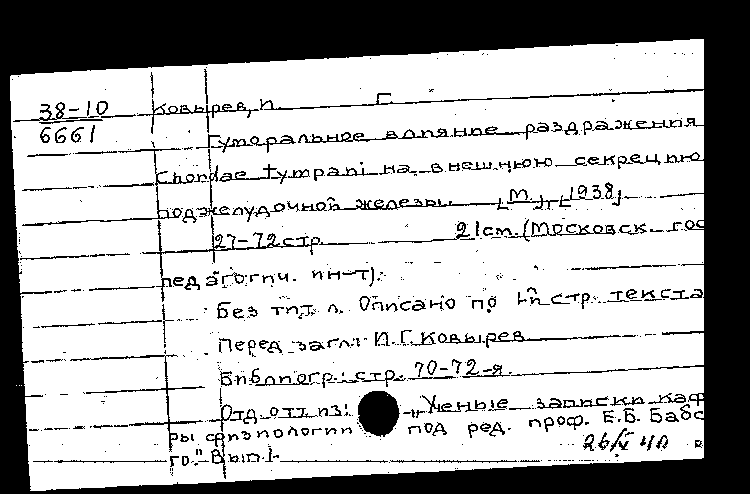 38-10 Ковырев, И. Г.
6661
Гуморальное влияние раздражения
Chordae tympani на внешнюю секрецию
поджелудочной железы. [М], [1938].
27-72 стр. 21 см. (Московск. гос
педагогич. ин-т).
Без тит. л. Описано по 1-й стр. текста
Перед загл: И.Г. Ковырев
Библиогр.: стр. 70-72-я.
Отд. отт. из: "Ученые записки каф
ры физиологии под ред. проф. Е.Б. Бабс
го." Вып. 1.
26/V 40